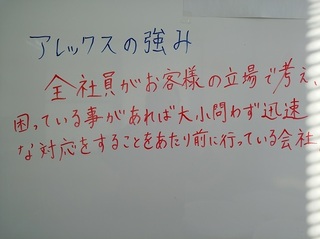 アレックスの強み
全社員がお客様の立場で考え、
困っている事があれば大小問わず迅速
な対応をすることをあたり前に行っている会社